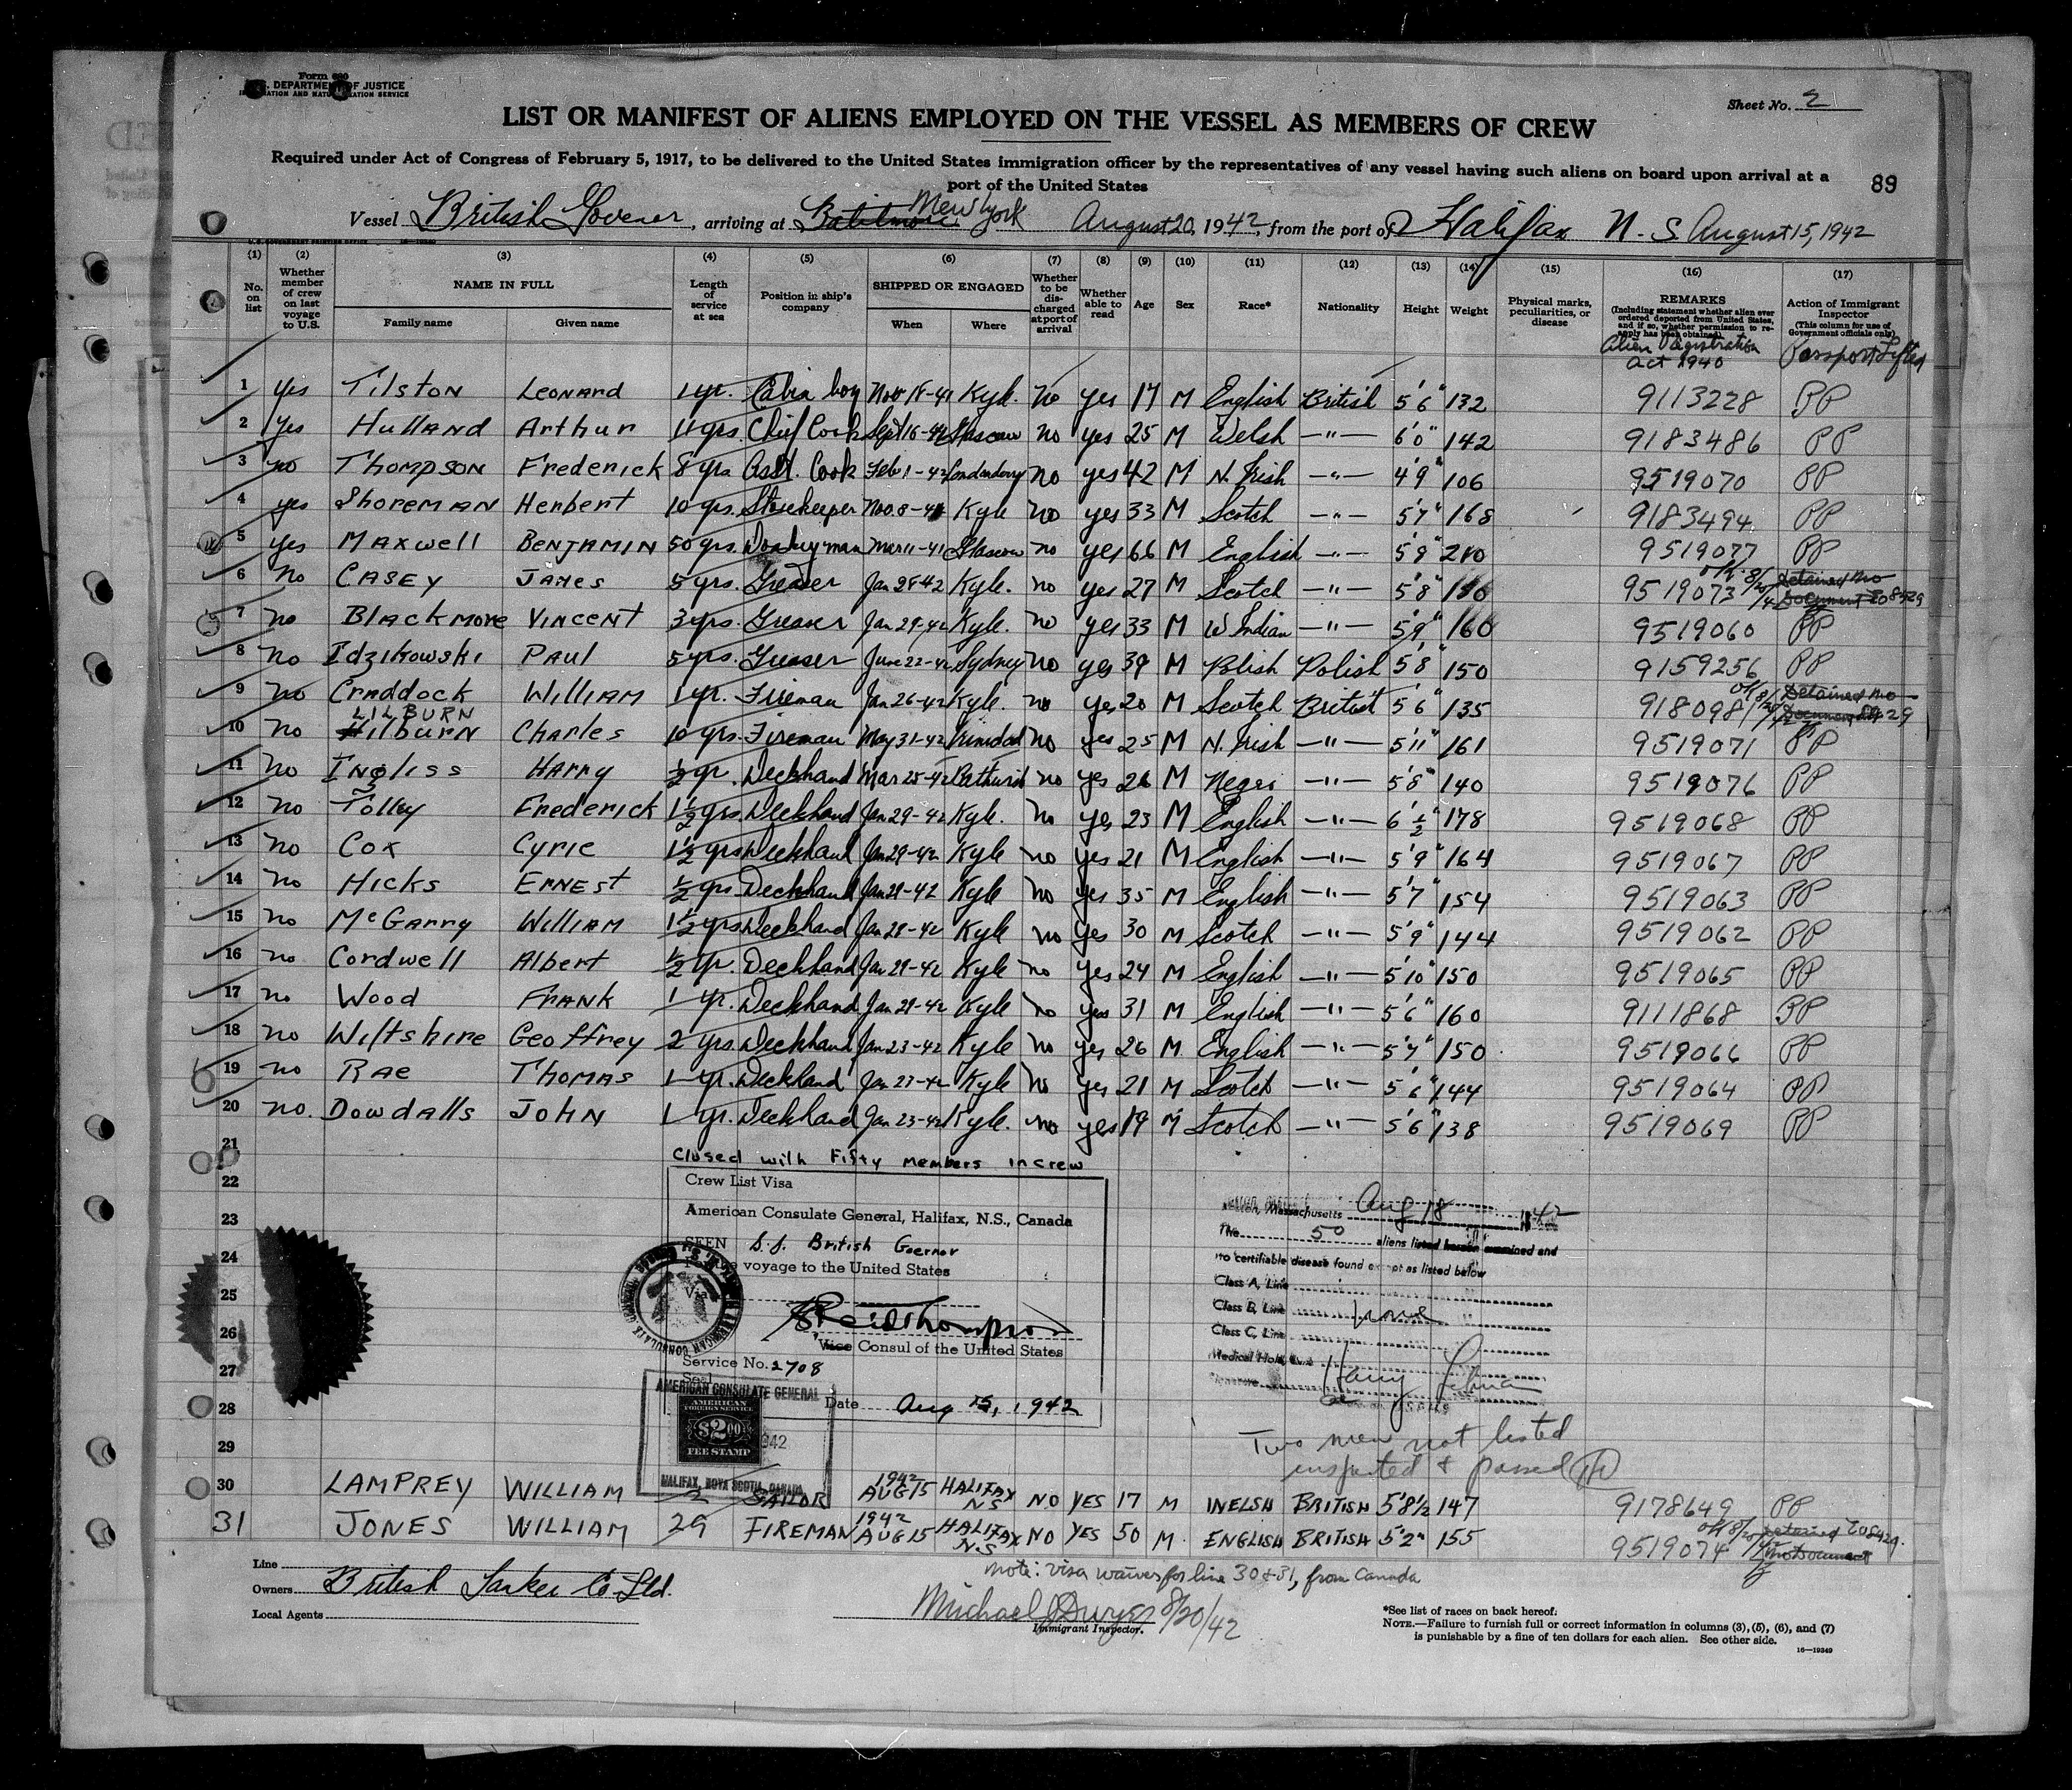 Form 680
U.S. DEPARTMENT OF JUSTICE
IMMIGRATION AND NATURALIZATION SERVICE
Sheet No. 2
LIST OR MANIFEST OF ALIENS EMPLOYED ON THE VESSEL AS MEMBERS OF CREW
Required under Act of Congress of February 5, 1917, to be delivered to the United States immigration officer by the representatives of any vessel having such aliens on board upon arrival at a
port of the United States
89
Vessel British Govener, arriving at Baltimore New York August 20, 1942, from the port of Halifax N.S. August 15, 1942
U.S. GOVERNMENT PRINTING OFFICE 16-19349
(1) (2) (3) (4) (5) (6) (7) (8) (9) (10) (11) (12) (13) (14) (15) (16) (17)
No. on list
Whether member of crew on last voyage to U.S.
NAME IN FULL
Family name
Given name
Length of service at sea
Position in ship's company
SHIPPED OR ENGAGED
When
Where
Whether to be discharged at port of arrival
Whether able to read
Age
Sex
Race*
Nationality
Height
Weight
Physical marks, peculiarities, or disease
REMARKS
(Including statement whether alien ever ordered deported from United States, and if so, whether permission to reapply has been obtained)
Alien Registration Act 1940
Action of Immigrant Inspector
(This column for use of Government officials only)
Passport Lifted
1 yes Tilston Leonard 1 yr. Cabin boy Nov 18-41 Kyle. no yes 17 M English British 5'6" 132 9113228 PP
2 yes Hulland Arthur 11 yrs. Chief Cook Sept 16-41 Glascow no yes 25 M Welsh —"— 6'0" 142 9183486 PP
3 no Thompson Frederick 8 yrs Asst. Cook Feb 1-42 Londonderry no yes 42 M N. Irish —"— 4'9" 106 9519070 PP
4 yes Shoreman Herbert 10 yrs. Storekeeper Nov. 8-41 Kyle no yes 33 M Scotch —"— 5'7" 168 9183494 PP
5 yes Maxwell Benjamin 50 yrs. Donkeyman Mar 11-41 Glascow no yes 66 M English —"— 5'8" 210 9519077 PP
6 no Casey James 5 yrs. Greaser Jan 28-42 Kyle. no yes 27 M Scotch —"— 5'8" 9519073 OK 8/20/42 Detained no Document
7 no Blackmore Vincent 3 yrs. Greaser Jan 29-42 Kyle. no yes 33 M W Indian —"— 5'9" 160 9519060 PP
8 no Idzikowski Paul 5 yrs. Greaser June 22-42 Sydney no yes 39 M Polish Polish 5'8" 150 9159256 PP
9 no Craddock William 1 yr. Fireman Jan 26-42 Kyle. no yes 20 M Scotch British 5'6" 135 918098 OK 8/20 Detained no Document
LILBURN
10 no Hilburn Charles 10 yrs. Fireman May 31-42 Trinidad no yes 25 M N. Irish —"— 5'11" 161 9519071 PP
11 no Ingliss Harry ½ yr. Deckhand Mar 25-42 Bathurst no yes 26 M Negro —"— 5'8" 140 9519076 PP
12 no Tolley Frederick 1½ yrs. Deckhand Jan 29-42 Kyle. no yes 23 M English —"— 6'½" 178 9519068 PP
13 no Cox Cyric 1½ yrs Deckhand Jan 29-42 Kyle no yes 21 M English —"— 5'9" 164 9519067 PP
14 no Hicks Ernest ½ yrs Deckhand Jan 29-42 Kyle no yes 35 M English —"— 5'7" 154 9519063 PP
15 no McGarry William 1½ yrs Deckhand Jan 28-42 Kyle no yes 30 M Scotch —"— 5'9" 144 9519062 PP
16 no Cordwell Albert ½ yr. Deckhand Jan 29-42 Kyle no yes 24 M English —"— 5'10" 150 9519065 PP
17 no Wood Frank 1 yr. Deckhand Jan 29-42 Kyle no yes 31 M English —"— 5'6" 160 9111868 PP
18 no Wiltshire Geoffrey 2 yrs. Deckhand Jan 23-42 Kyle no yes 26 M English —"— 5'7" 150 9519066 PP
19 no Rae Thomas 1 yr. Deckhand Jan 23-42 Kyle no yes 21 M Scotch —"— 5'6" 144 9519064 PP
20 no. Dowdalls John 1 yr. Deckhand Jan 23-42 Kyle. no yes 19 M Scotch —"— 5'6" 138 9519069 PP
21
Closed with Fifty members in crew
22
Crew List Visa
23
American Consulate General, Halifax, N.S., Canada
SEEN S.S. British Goernor
24
For the voyage to the United States
25
Via
26
Vice Consul of the United States
27
Service No. 2708
Seal
28
Date Aug 15, 1942
29
AMERICAN CONSULATE GENERAL
AMERICAN FOREIGN SERVICE
$2.00
FEE STAMP
HALIFAX, NOVA SCOTIA, CANADA
Boston, Massachusetts Aug 18 1942
The 50 aliens listed hereon examined and
no certifiable disease found except as listed below
Class A, Line
Class B, Line none
Class C, Line
Medical Hold, Line
Signature Harry
Two men not listed
inspected & passed
30 LAMPREY WILLIAM 2 SAILOR 1942 AUG 15 HALIFAX N.S NO YES 17 M WELSH BRITISH 5'8½ 147 9178649 PP
31 JONES WILLIAM 29 FIREMAN 1942 AUG 15 HALIFAX N.S NO YES 50 M. ENGLISH BRITISH 5'2" 155 9519074 OK 8/20 Detained no Document
Note: visa waived for line 30 & 31, from Canada
Line
Owners British Tanker Co. Ltd.
Local Agents
Michael J Dwyer 8/20/42
Immigrant Inspector.
*See list of races on back hereof.
NOTE.—Failure to furnish full or correct information in columns (3), (5), (6), and (7)
is punishable by a fine of ten dollars for each alien. See other side.
16—19349